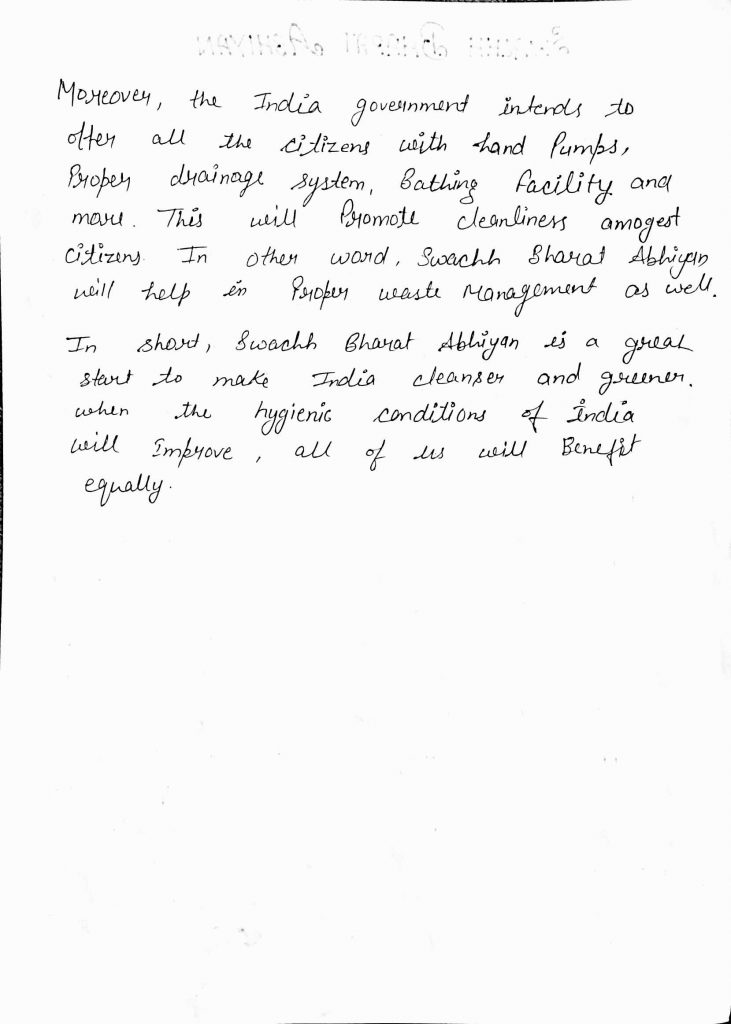 Moreover, the India government intends to
offer all the citizens with hand Pumps,
Proper drainage system, Bathing facility and
more. This will Promote cleanliness amogest
citizens. In other word, Swachh Bharat Abhiyan
will help in Proper waste Management as well.
In short, Swachh Bharat Abhiyan is a great
start to make India cleanser and greener.
when the hygienic conditions of India
will Improve, all of us will Benefit
equally.